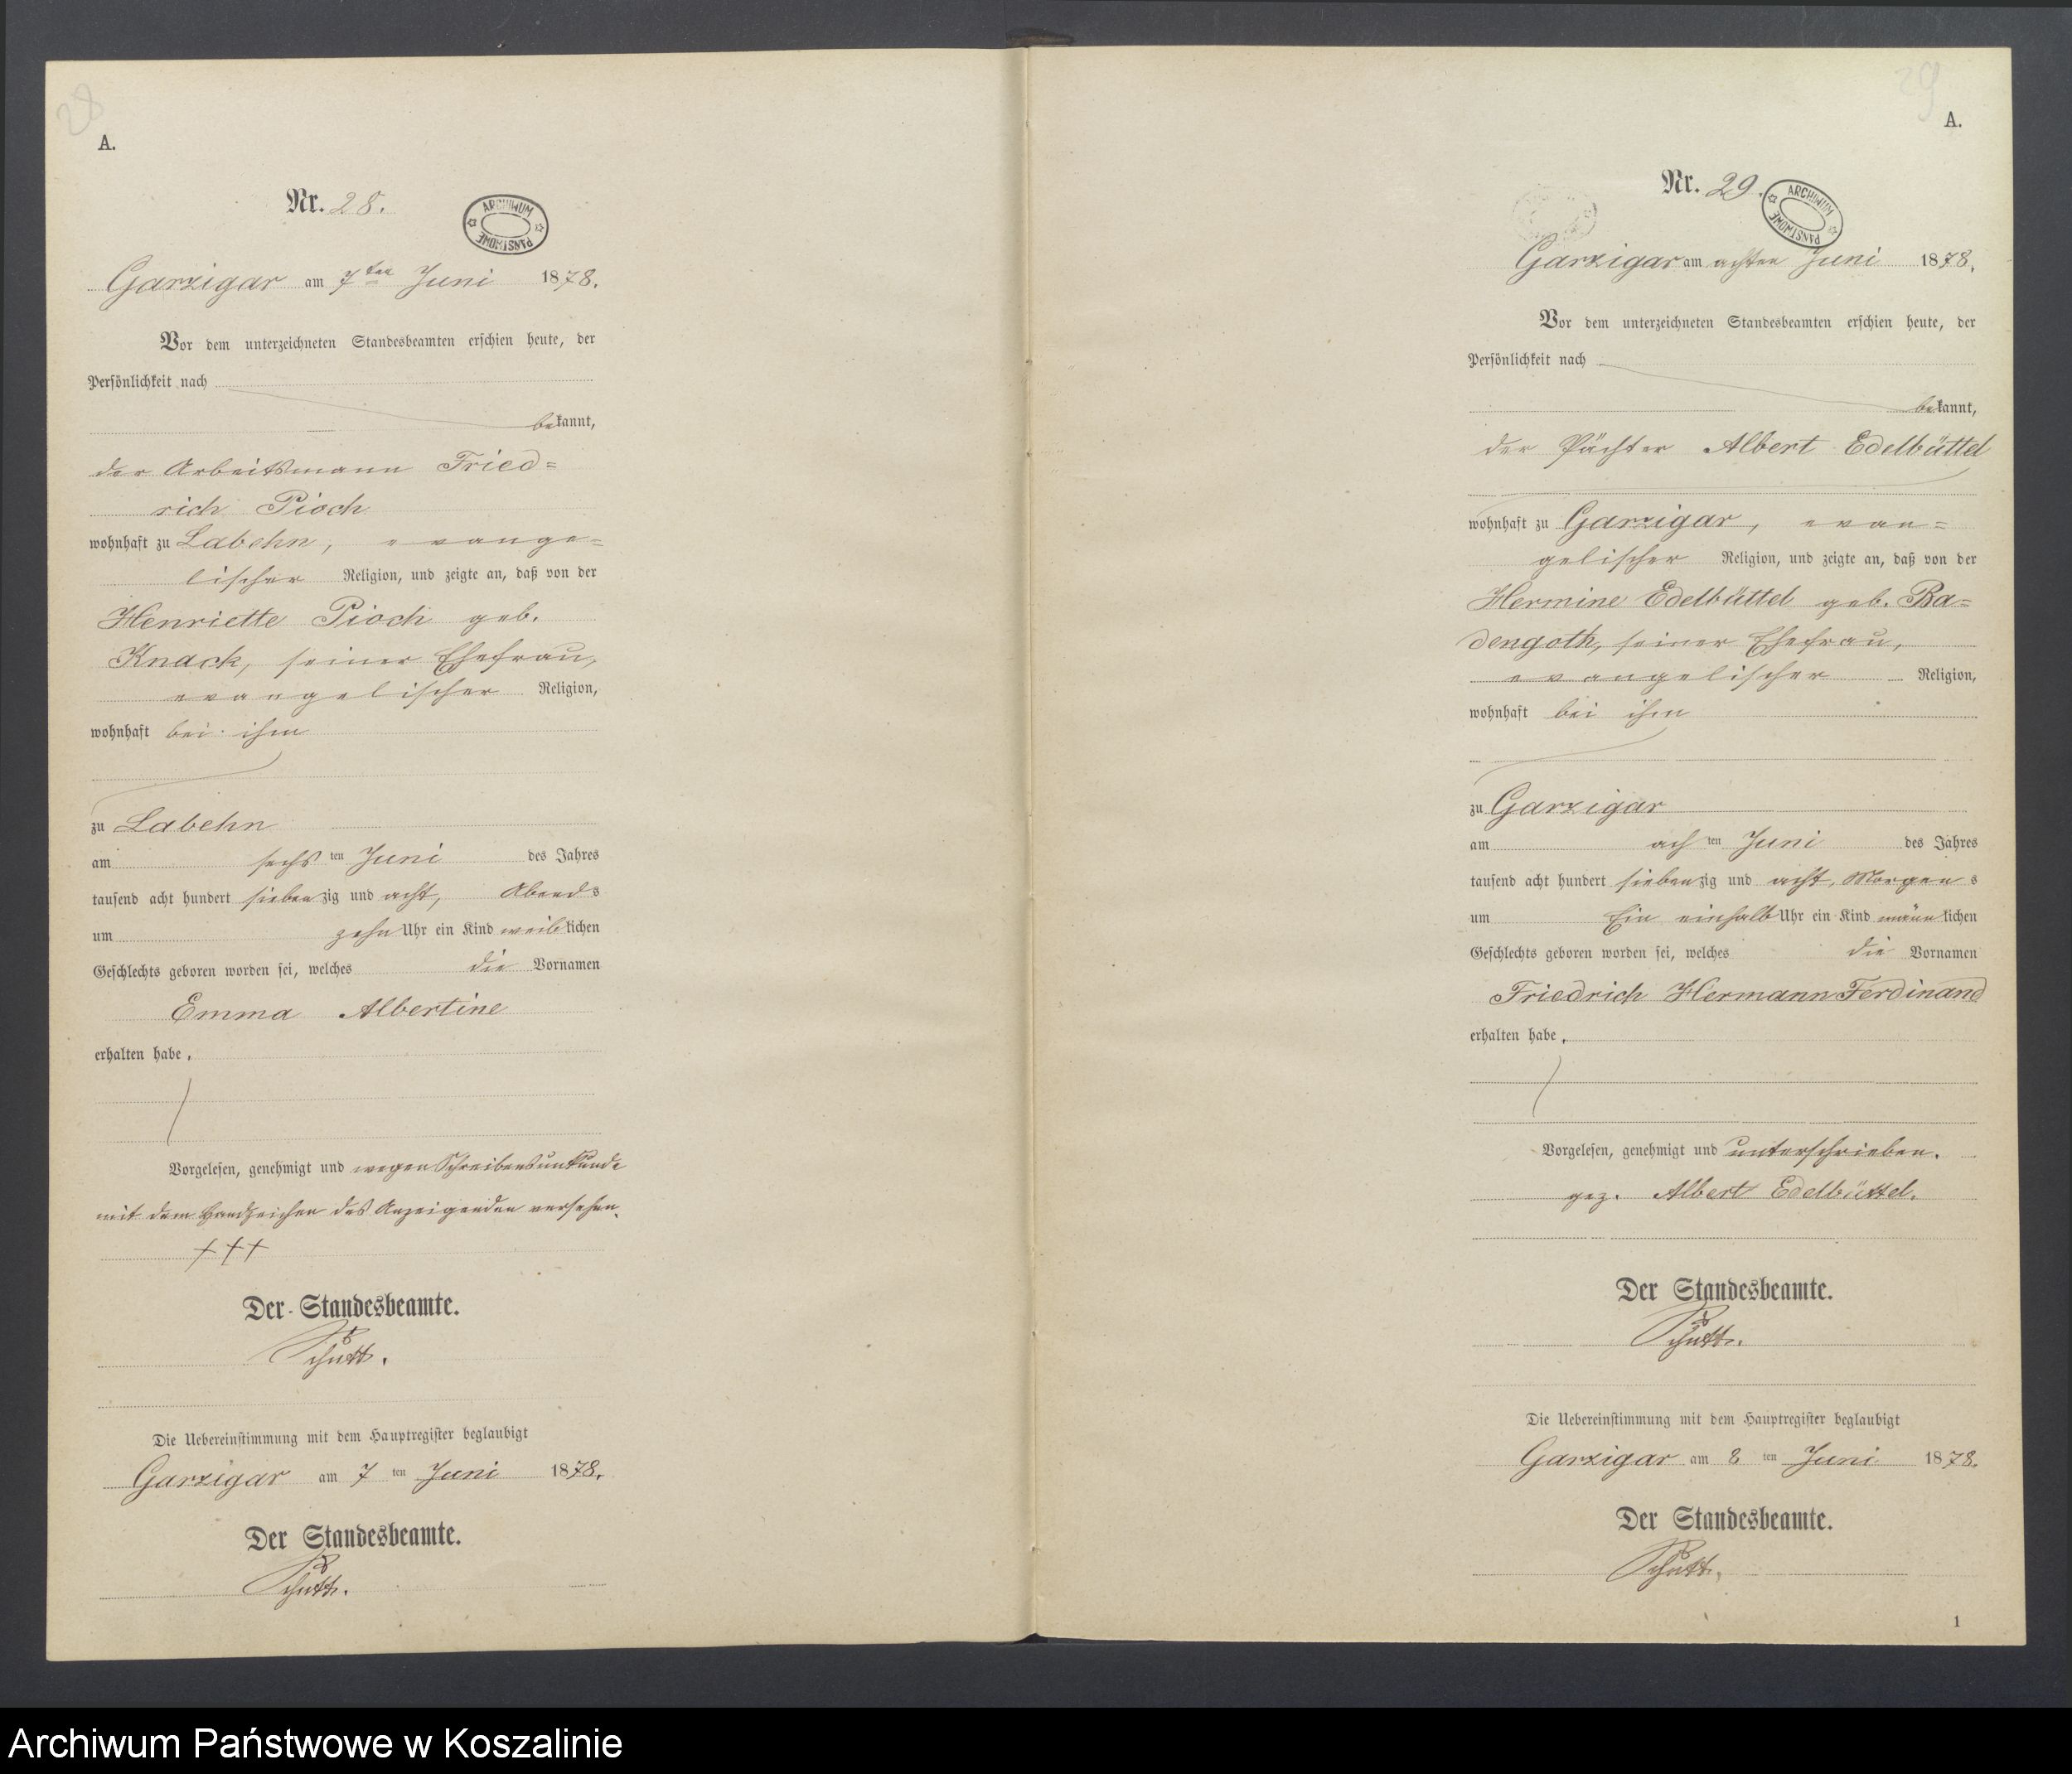 28
A.
Nr. 28.
ARCHIWUM PAŃSTWOWE
Garzigar am 7ten Juni 1878.
Vor dem unterzeichneten Standesbeamten erschien heute, der
Persönlichkeit nach
bekannt,
der Arbeitsmann Fried=
rich Pioch
wohnhaft zu Labehn, evange=
lischer Religion, und zeigte an, daß von der
Henriette Pioch geb.
Knack, seiner Ehefrau,
evangelischer Religion,
wohnhaft bei ihm
zu Labehn
am sechsten Juni des Jahres
tausend acht hundert siebenzig und acht, Abends
um zehn Uhr ein Kind weiblichen
Geschlechts geboren worden sei, welches die Vornamen
Emma Albertine
erhalten habe.
Vorgelesen, genehmigt und wegen Schreibensunkunde
mit dem Handzeichen des Anzeigenden versehen.
+++
Der Standesbeamte.
Schütt.
Die Uebereinstimmung mit dem Hauptregister beglaubigt
Garzigar am 7ten Juni 1878.
Der Standesbeamte.
Schütt.
29
A.
Nr. 29.
ARCHIWUM PAŃSTWOWE
Garzigar am achten Juni 1878.
Vor dem unterzeichneten Standesbeamten erschien heute, der
Persönlichkeit nach
bekannt,
der Pächter Albert Edelbüttel
wohnhaft zu Garzigar, evan=
gelischer Religion, und zeigte an, daß von der
Hermine Edelbüttel geb. Ba=
dengoth, seiner Ehefrau,
evangelischer Religion,
wohnhaft bei ihm
zu Garzigar
am achten Juni des Jahres
tausend acht hundert siebenzig und acht, Morgens
um Ein einhalb Uhr ein Kind männlichen
Geschlechts geboren worden sei, welches die Vornamen
Friedrich Hermann Ferdinand
erhalten habe.
Vorgelesen, genehmigt und unterschrieben.
gez. Albert Edelbüttel.
Der Standesbeamte.
Schütt.
Die Uebereinstimmung mit dem Hauptregister beglaubigt
Garzigar am 8ten Juni 1878.
Der Standesbeamte.
Schütt.
1
Archiwum Państwowe w Koszalinie